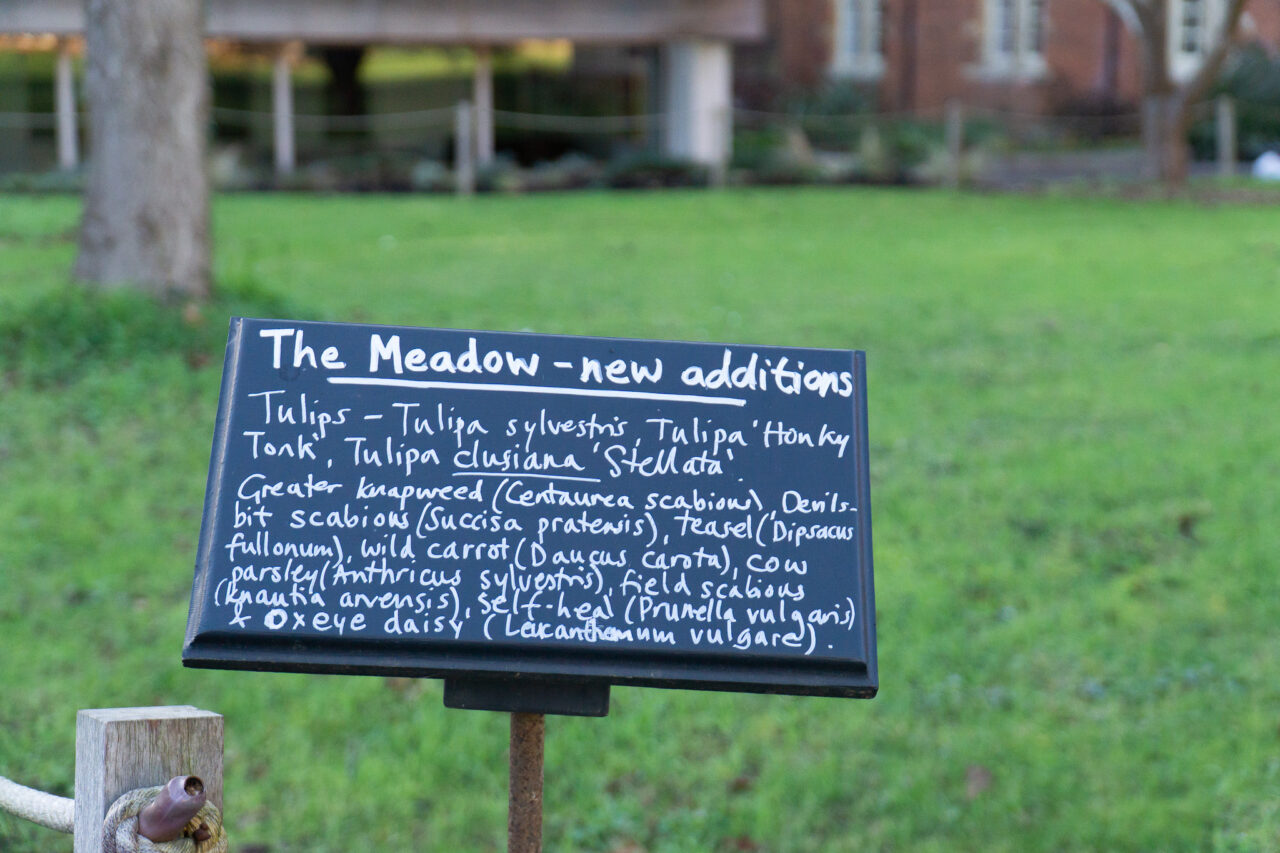 The Meadow - new additions
Tulips - Tulipa sylvestris, Tulipa 'Honky
Tonk', Tulipa clusiana 'Stellata'.
Greater knapweed (Centaurea scabious), Devils-
bit scabious (Succisa pratensis), teasel ('Dipsacus
fullonum), wild carrot (Daucus carota), cow
parsley (Anthricus sylvestris), field scabious
(Knautia arvensis), self-heal (Prunella vulgaris)
& Oxeye daisy (Leucanthemum vulgare).